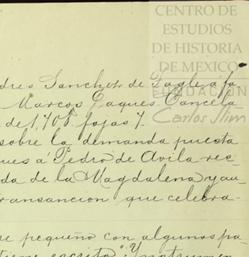 CENTRO DE
ESTUDIOS
DE HISTORIA
DE MEXICO
FUNDACIÓN
Carlos Slim
dres Sanchez de Tagle a fa
Marcos Jaques Cancela
de 1,708. fojas 7.
sobre la demanda puesta
ques a Pedro de Avila rec
da de la Magdalena y au
transancion que celebra-
e pequeño con algunos pa